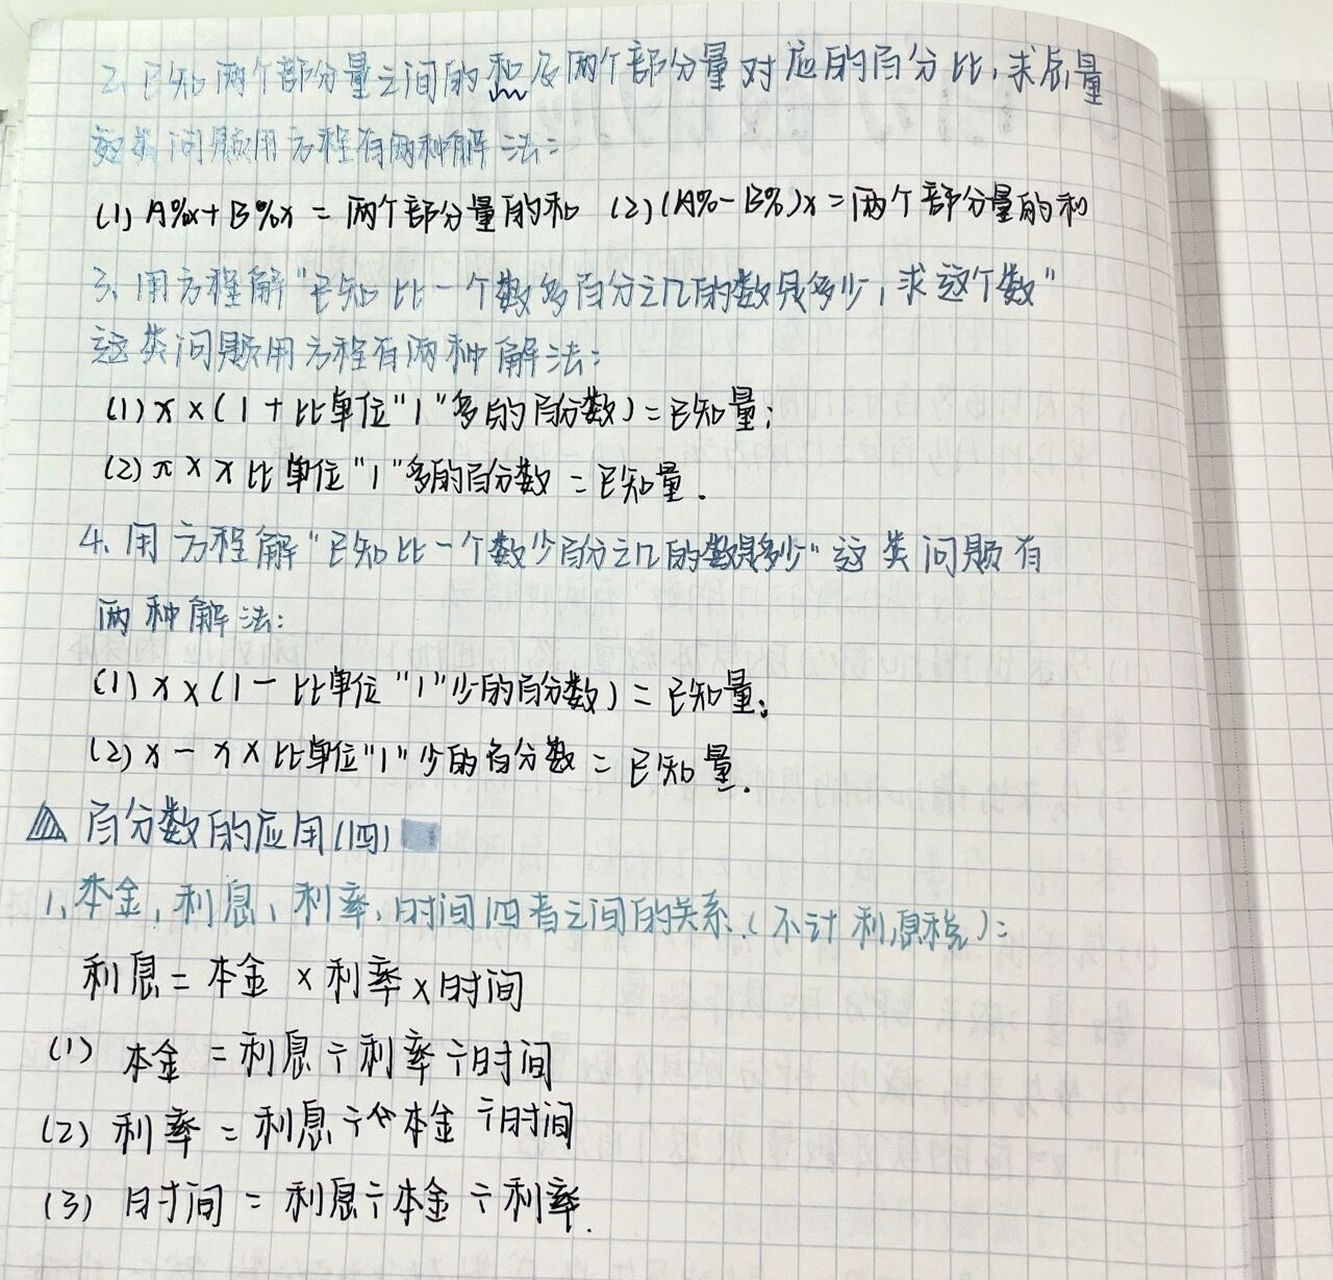 2、已知两个部分量之间的和及两个部分量对应的百分比,求总量
这类问题用方程有两种解法:
(1) A%x+B%x=两个部分量的和 (2)(A%-B%)x=两个部分量的和
3、用方程解“已知比一个数多百分之几的数是多少,求这个数”
这类问题用方程有两种解法:
(1) x×(1+比单位“1”多的百分数)=已知量;
(2) x×x比单位“1”多的百分数=已知量.
4、用方程解“已知比一个数少百分之几的数是多少”这类问题有
两种解法:
(1) x×(1-比单位“1”少的百分数)=已知量;
(2) x-x×比单位“1”少的百分数=已知量.
百分数的应用(四)
1、本金,利息,利率,时间四者之间的关系.(不计利息税):
利息=本金×利率×时间
(1) 本金=利息÷利率÷时间
(2) 利率=利息÷本金÷时间
(3) 时间=利息÷本金÷利率.